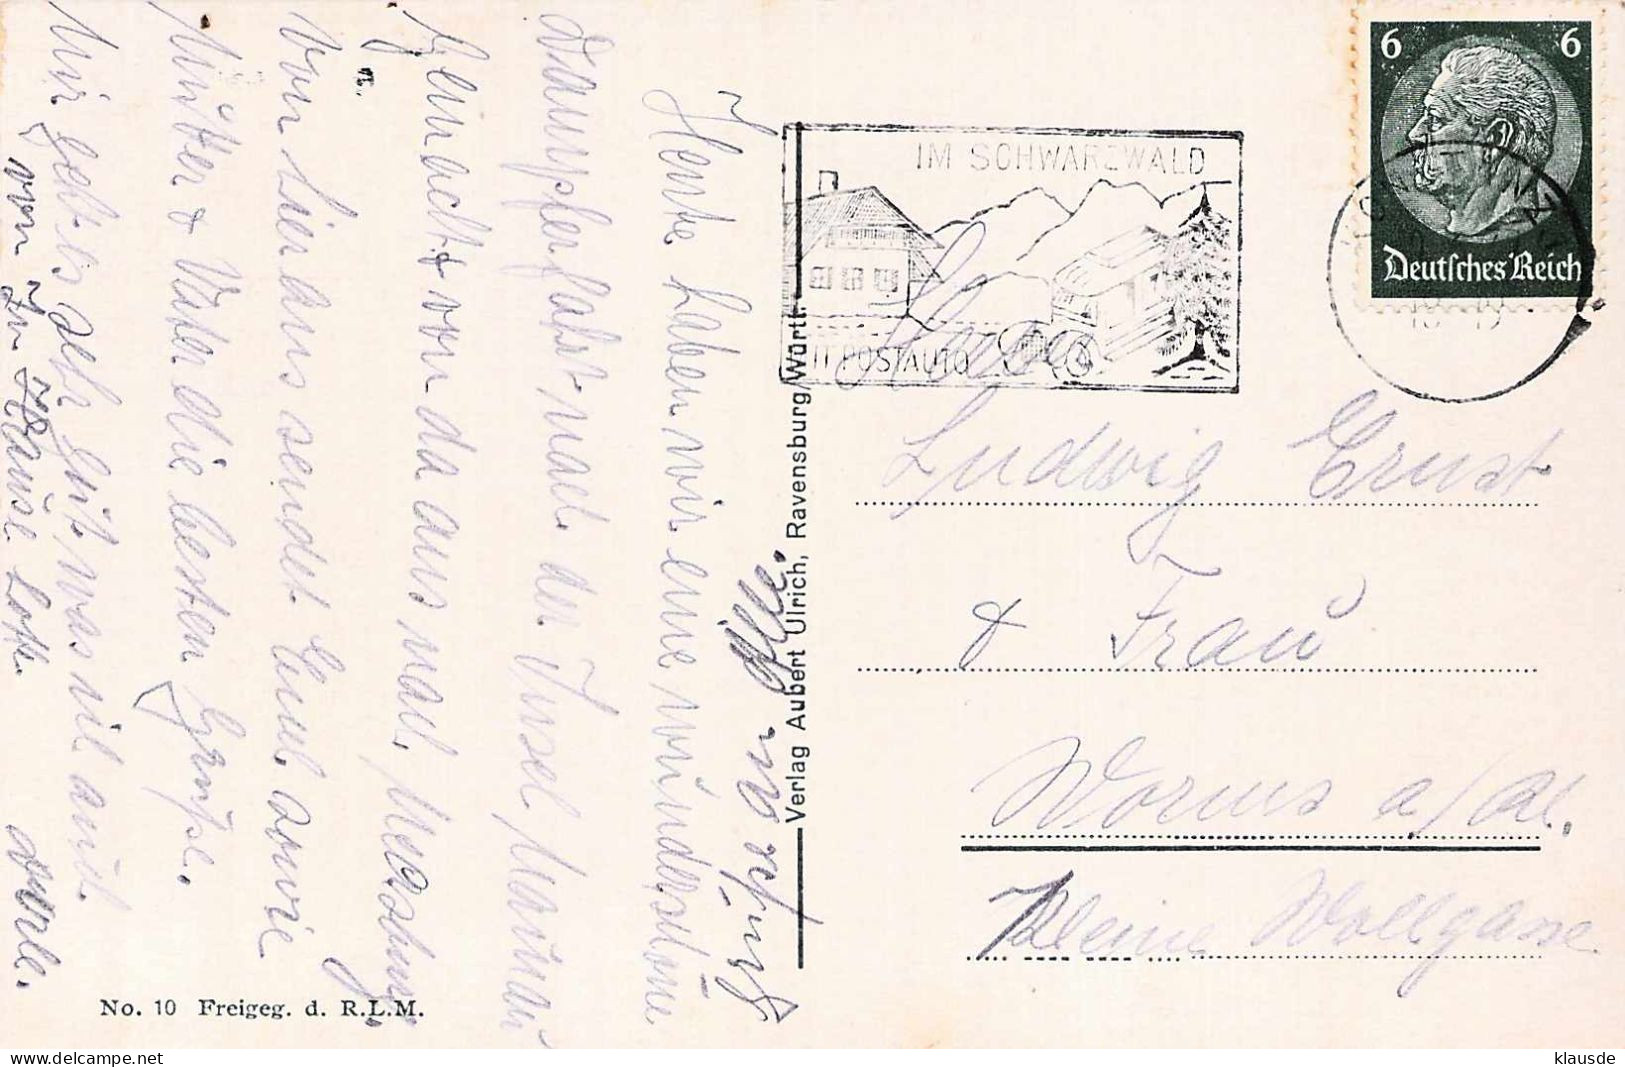 Heute haben wir eine wunderschöne
Dampferfahrt nach der Insel Mainau
gemacht & von da aus nach Meersburg.
Von hier aus sendet Euch sowie
Mutter & Vater die besten Grüße.
Mir geht es sehr gut was
von
No. 10 Freigeg. d. R.L.M.
Verlag Aubert Ulrich, Ravensburg/Württ.
IM SCHWARZWALD
MIT POSTAUTO
6 6
Deutsches Reich
KONSTANZ
Ludwig Ernst
& Frau
Worms a/Rh.
Kleine Wollgasse
klausde
www.delcampe.net